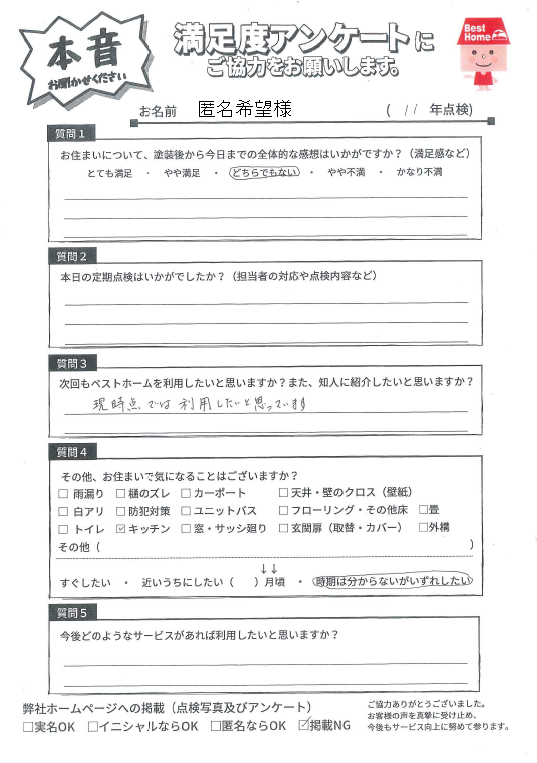 本音
お聞かせください
満足度アンケートに
ご協力をお願いします。
Best
Home
お名前 匿名希望様 ( 11 年点検)
質問1
お住まいについて、塗装後から今日までの全体的な感想はいかがですか？（満足感など）
とても満足 ・ やや満足 ・ どちらでもない ・ やや不満 ・ かなり不満
質問2
本日の定期点検はいかがでしたか？（担当者の対応や点検内容など）
質問3
次回もベストホームを利用したいと思いますか？また、知人に紹介したいと思いますか？
現時点では利用したいと思っています
質問4
その他、お住まいで気になることはございますか？
□ 雨漏り □ 樋のズレ □ カーポート □ 天井・壁のクロス（壁紙）
□ 白アリ □ 防犯対策 □ ユニットバス □ フローリング・その他床 □畳
□ トイレ ☑ キッチン □ 窓・サッシ廻り □ 玄関扉（取替・カバー） □外構
その他（ ）
↓↓
すぐしたい ・ 近いうちにしたい（ ）月頃 ・ 時期は分からないがいずれしたい
質問5
今後どのようなサービスがあれば利用したいと思いますか？
弊社ホームページへの掲載（点検写真及びアンケート）
□実名OK □イニシャルならOK □匿名ならOK ☑掲載NG
ご協力ありがとうございました。
お客様の声を真摯に受け止め、
今後もサービス向上に努めて参ります。